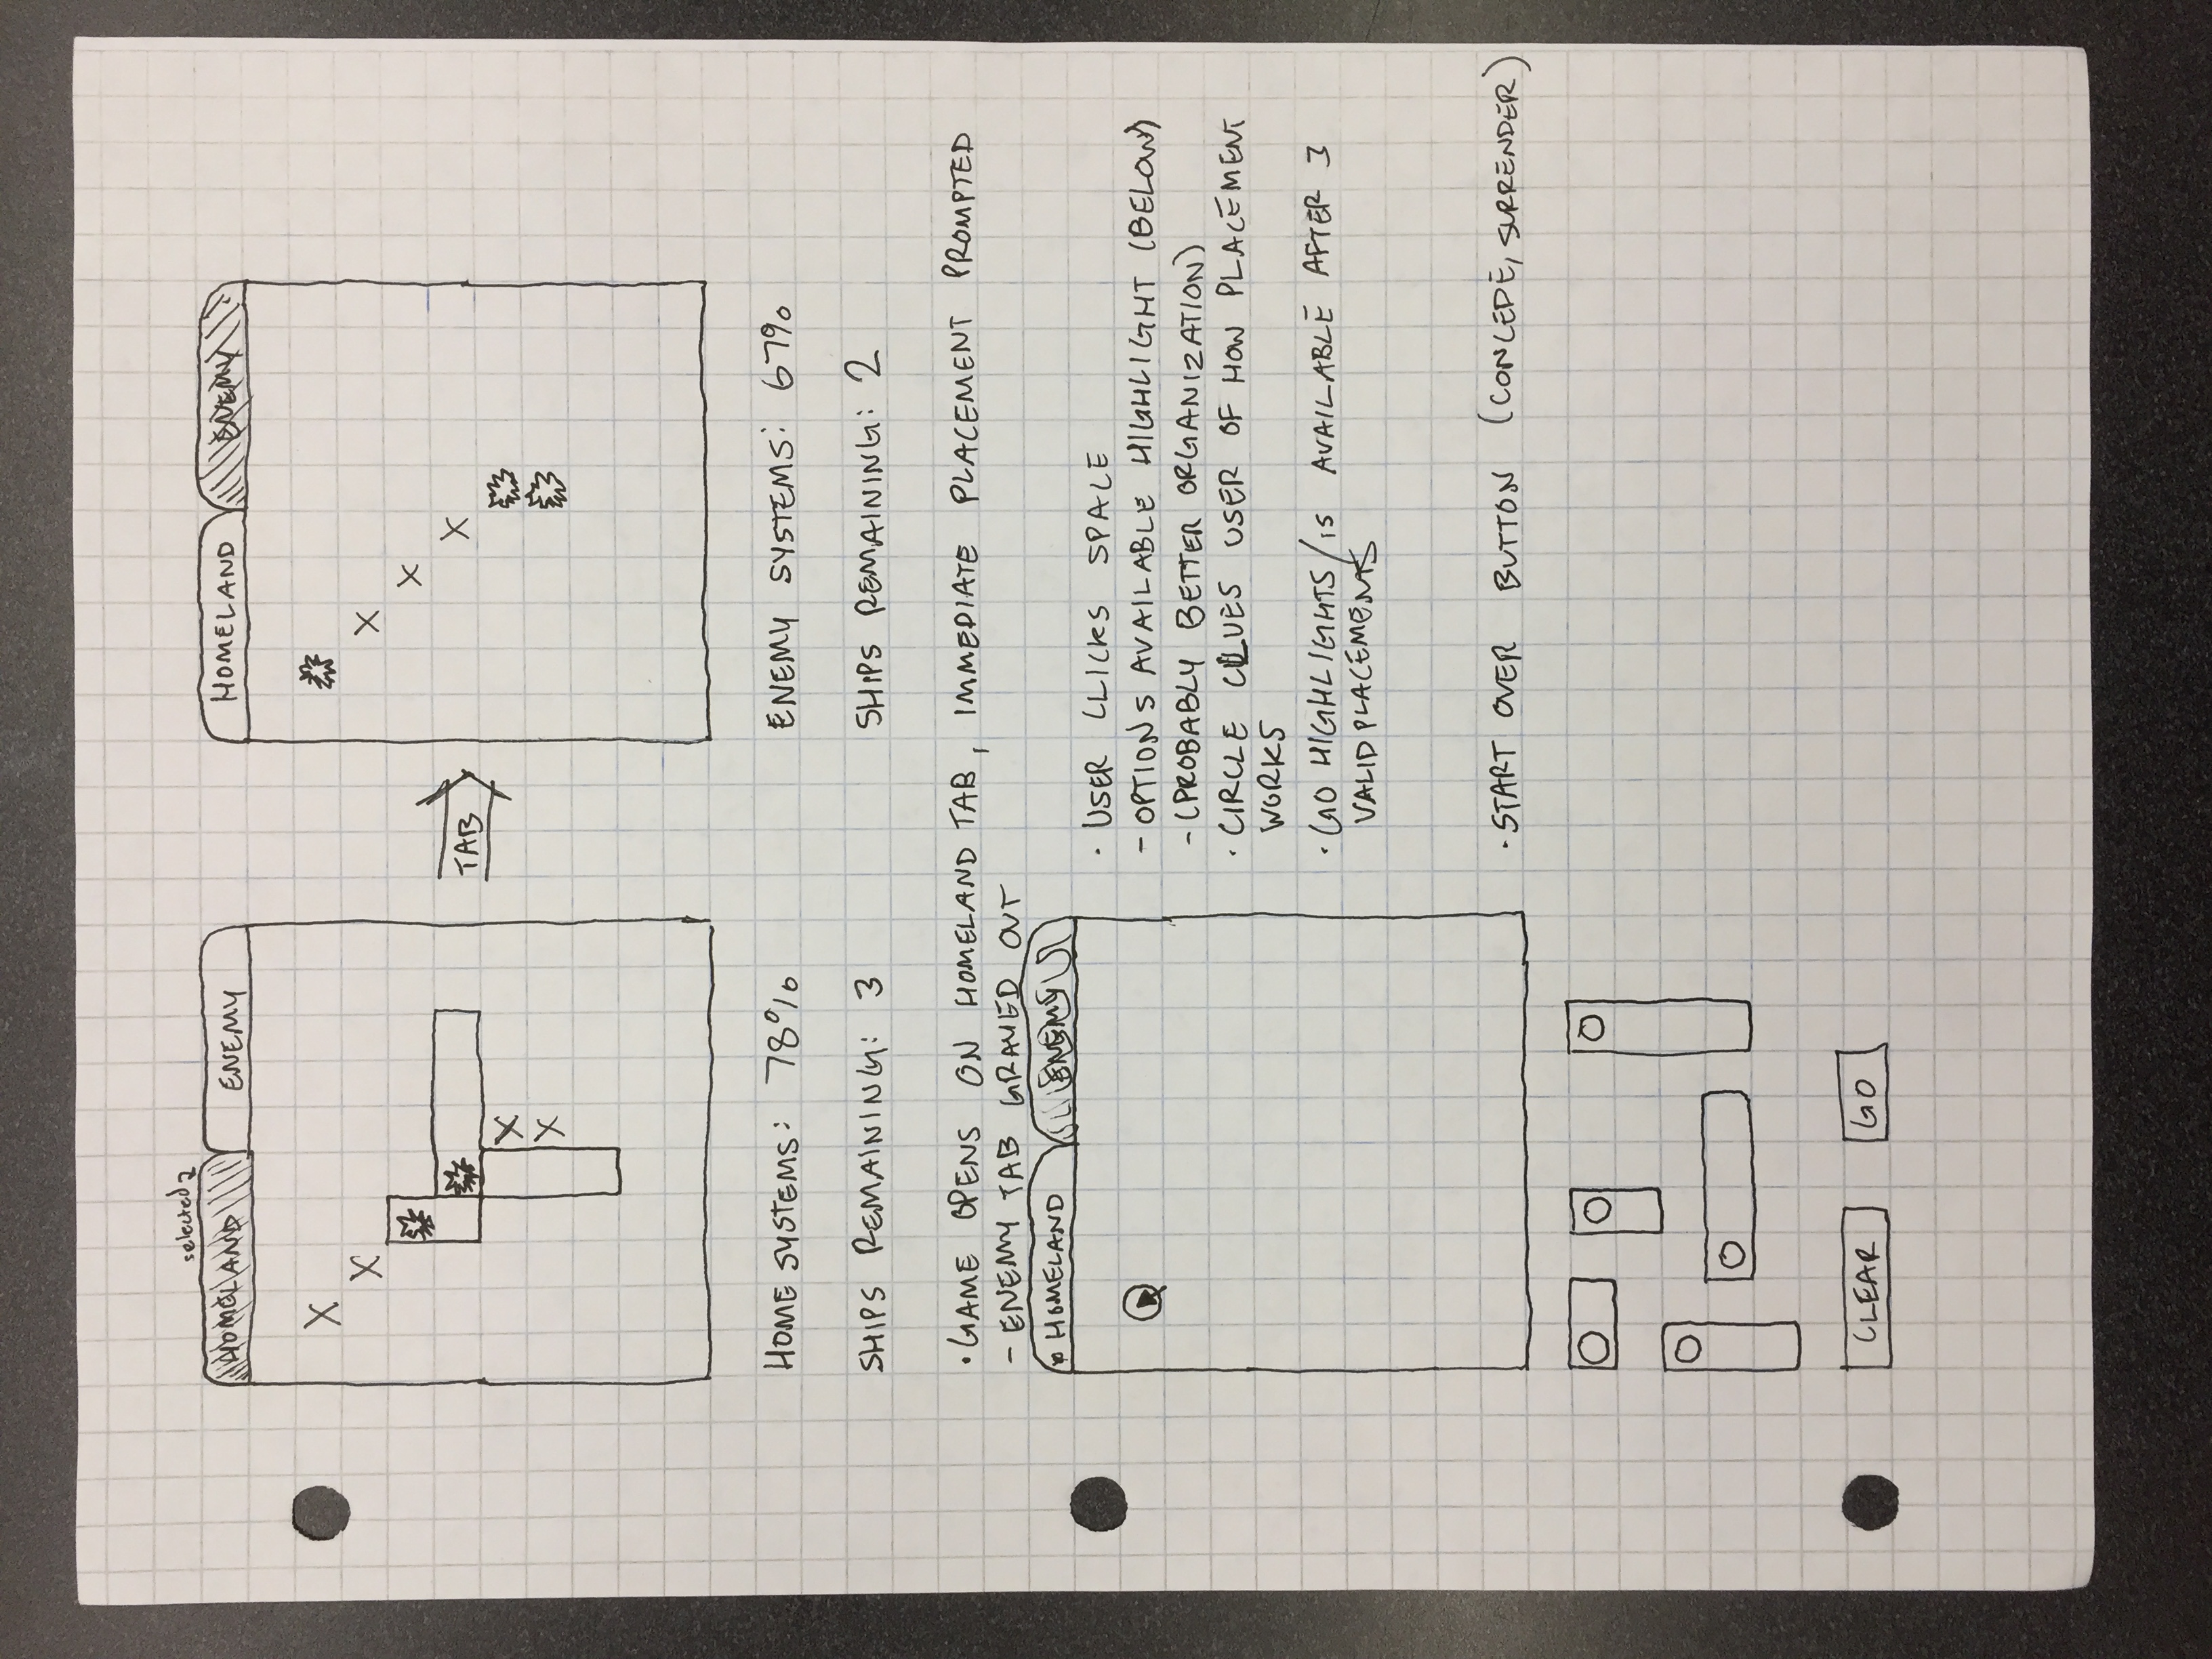 selected
HOMELAND ENEMY
HOMELAND ENEMY
X
X
X
X
X
TAB
X
X
X
HOME SYSTEMS: 78%
ENEMY SYSTEMS: 67%
SHIPS REMAINING: 3
SHIPS REMAINING: 2
• GAME OPENS ON HOMELAND TAB, IMMEDIATE PLACEMENT PROMPTED
- ENEMY TAB GRAYED OUT
HOMELAND ENEMY
• USER CLICKS SPACE
- OPTIONS AVAILABLE HIGHLIGHT (BELOW)
- (PROBABLY BETTER ORGANIZATION)
• CIRCLE CLUES USER OF HOW PLACEMENT
WORKS
• GO HIGHLIGHTS/IS AVAILABLE AFTER 3
VALID PLACEMENTS
• START OVER BUTTON (CONCEDE, SURRENDER)
CLEAR GO